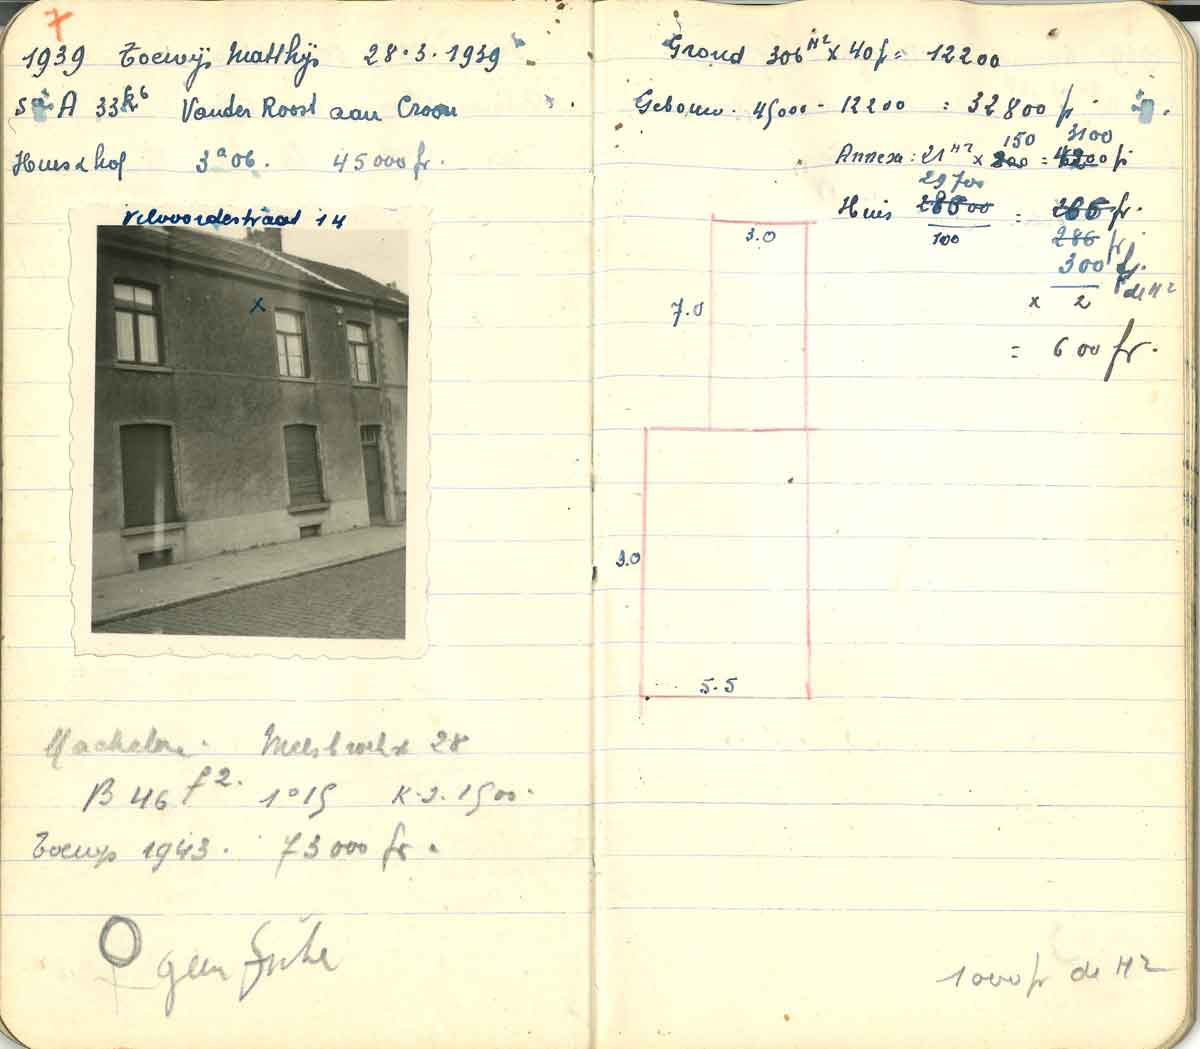 7
1939 Toewijs Matthijs 28.3.1939
A 33 Vander Roost aan Croon
Huis & hof 3a06. 45000 fr.
Vilvoordestraat 14
x
Machelen. 28
B 46 f2. 1a15 K.I. 1500.
Toewijs 1943. 73000 fr.
geen
Grond 306 M2 x 40 f = 12200
Gebouw. 45000 - 12200 = 32800 fr.
150 3100
Annexe: 21 M2 x 200 = 4200 fr
29700
Huis 28600 = 266 fr.
100 286 fr
300 fr.
de M2
x 2
= 600 fr.
3.0
7.0
9.0
5.5
1000 fr de M2